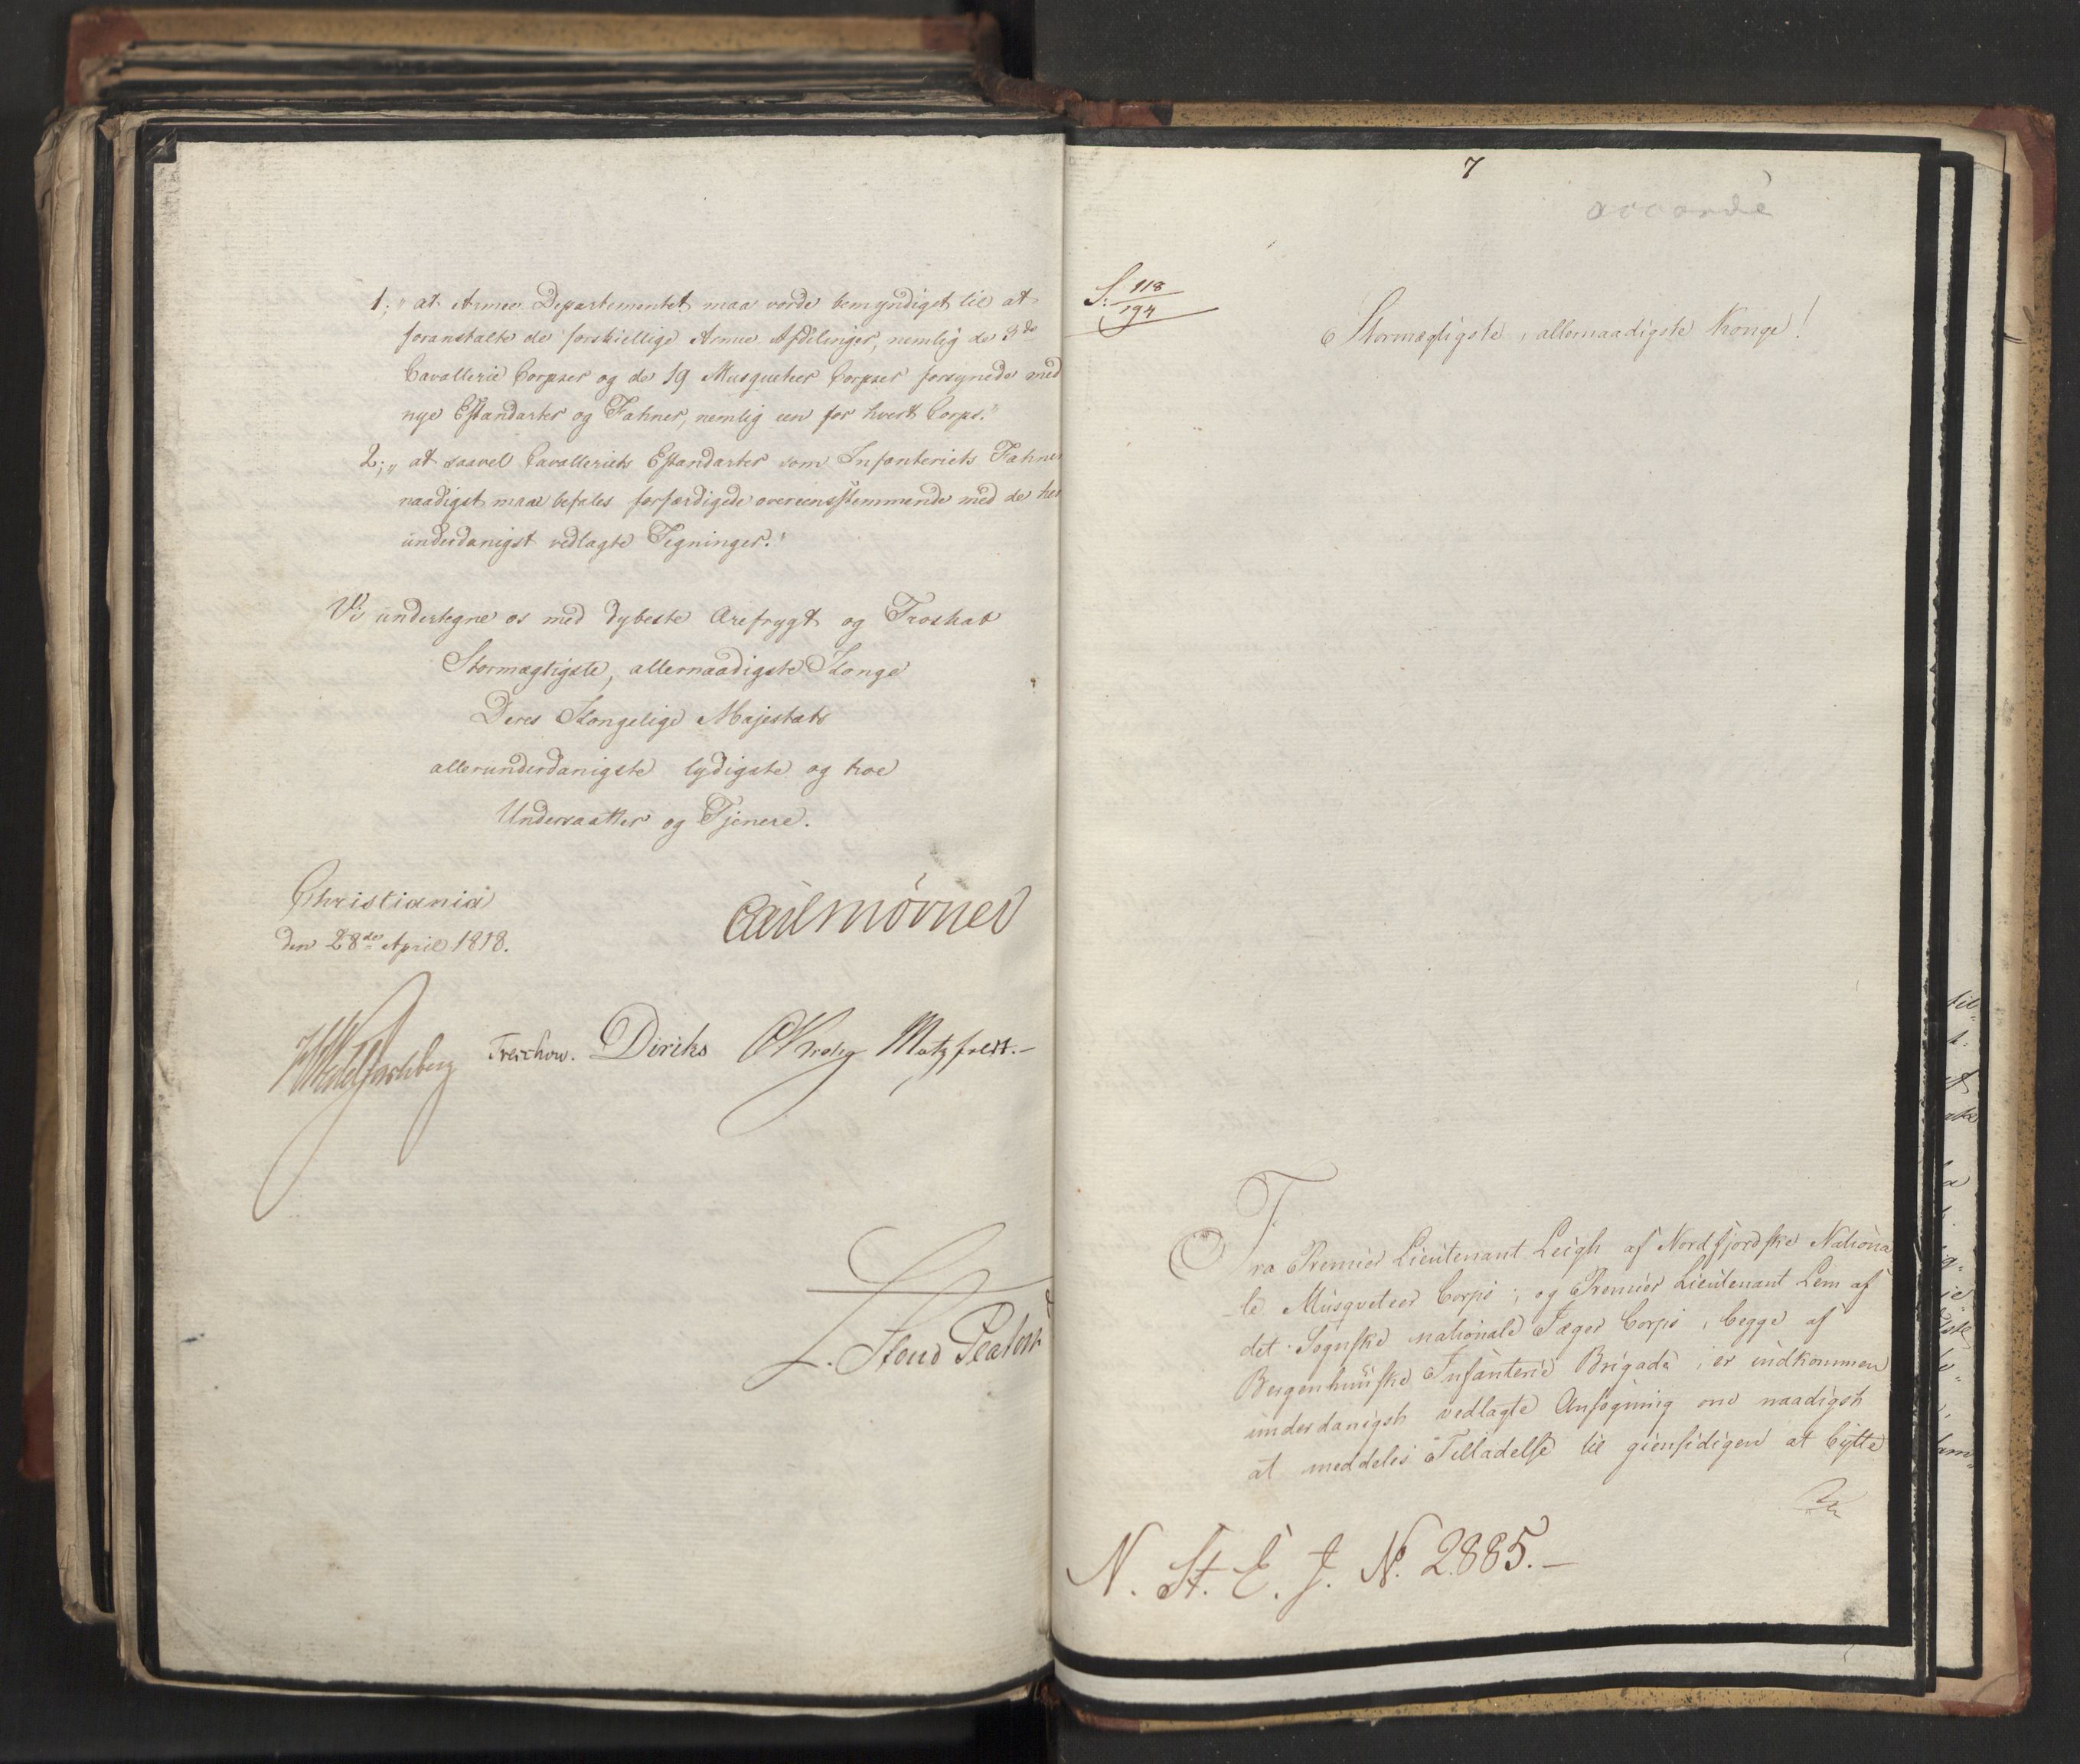 1, „at Armee Departementet maa vorde bemyndiget til at
foranstalte de forskiellige Armee Afdelinger, nemlig de 3de
Cavallerie Corpser og de 19 Musqueteer Corpser forsynede med
nye Estandarter og Fahner, nemlig een for hvert Corps.”
2, „at saavel Cavalleriets Estandarter som Infanteriets Fahner
naadigst maae befales forfærdigede overeensstemmende med de her
underdanigst vedlagte Tegninger.”
Vi undertegne os med dybeste Ærefrygt og Troskab
Stormægtigste, allernaadigste Konge
Deres Kongelige Majestæts
allerunderdanigste lydigste og troe
Undersaatter og Tjenere.
Christiania
den 28de April 1818.
Carl Mörner
Wedel Jarlsberg Treschow. Diriks Krohg Motzfeldt.–
7
accordé
S: 118
194
Stormægtigste, allernaadigste Konge!
Fra Premier Lieutenant Leigh af Nordfjordske Nationa
-le Musqveteer Corps, og Premier Lieutenant Lem af
det Sognske nationale Jæger Corps, begge af
Bergenhuuske Infanterie Brigade, er indkommen
underdanigst vedlagte Ansøgning om naadigst
at meddeles Tilladelse til giensidigen at bytte
N. St. E. J. No. 2885.–